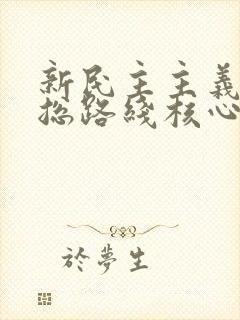 新民主主義
總路綫核心
於夢生